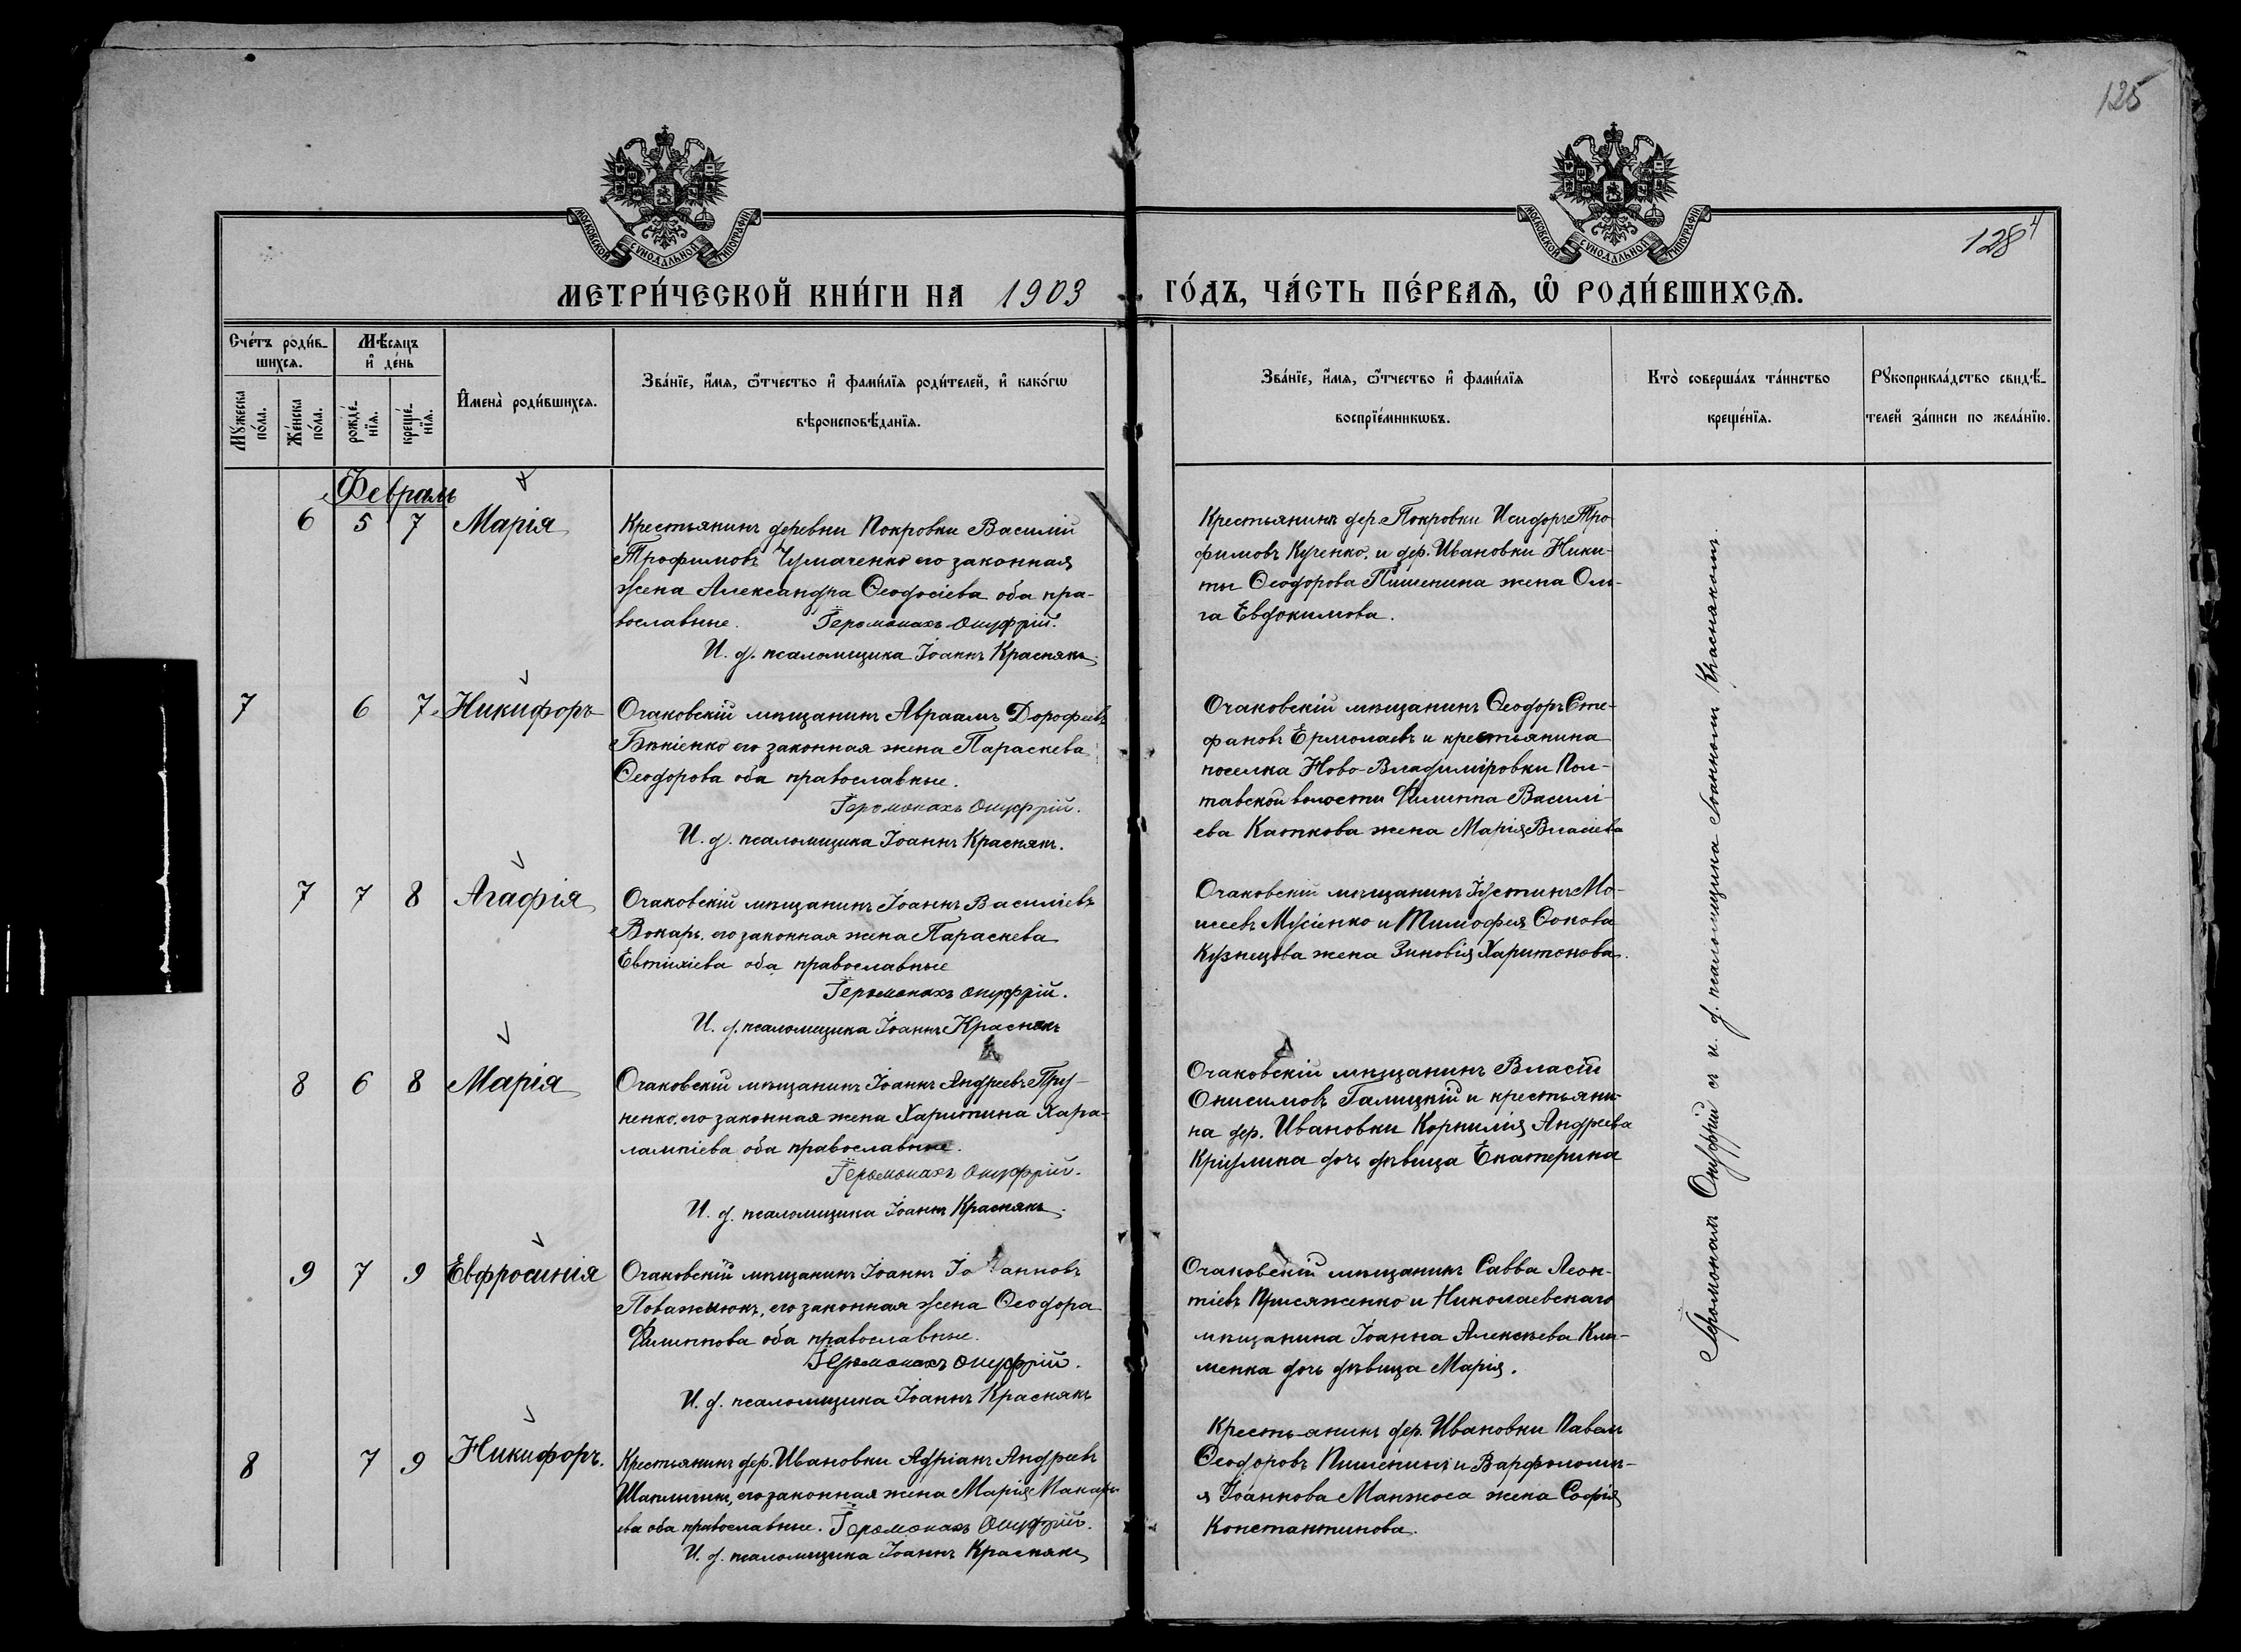 125
МОСКОВСКОЙ СѴНОДАЛЬНОЙ ТИПОГРАФІИ
МОСКОВСКОЙ СѴНОДАЛЬНОЙ ТИПОГРАФІИ
128
МЕТРИ́ЧЕСКОЙ КНИ́ГИ НА 1903 ГО́ДЪ, ЧА́СТЬ ПЕ́РВАѦ, Ѡ҆ РОДИ́ВШИХСѦ.
Сче́тъ роди́в-
шихсѧ.
Мꙋжеска
по́ла.
Же́нска
по́ла.
Мѣ́сяцъ
и҆ де́нь
рожде́-
нїѧ.
креще́-
нїѧ.
И҆мена̀ роди́вшихсѧ.
Зва́нїе, и҆́мѧ, ѻ҆́тчество и҆ фами́лїѧ роди́телей, и҆ како́гѡ
вѣроисповѣ́данїѧ.
Зва́нїе, и҆́мѧ, ѻ҆́тчество и҆ фами́лїѧ
воспрїе́мникѡвъ.
Кто̀ соверша́лъ та́инство
креще́нїѧ.
Рꙋкоприкла́дство свидѣ́-
телей за́писи по жела́нїю.
Февраль
6 5 7 Марія
Крестьянинъ деревни Покровки Василій
Трофимовъ Чумаченко его законная
жена Александра Ѳеодосіева оба пра-
вославные. Іеромонахъ Онуфрій.
И. д. псаломщика Іоаннъ Краснякъ
Крестьянинъ дер. Покровки Исидоръ Тро
фимовъ Кученко, и дер. Ивановки Ники-
ты Ѳеодорова Пишенина жена Оль-
га Евдокимова.
7 6 7 Никифоръ
Очаковскій мѣщанинъ Авраамъ Дорофеевъ
его законная жена Параскева
Ѳеодорова оба православные.
Іеромонахъ Онуфрій.
И. д. псаломщика Іоаннъ Краснякъ.
Очаковскій мѣщанинъ Ѳеодоръ Сте-
фановъ Ермолаевъ и крестьянина
поселка Ново-Владиміровки Пол-
тавской волости Филиппа Василі-
ева Каткова жена Марія Власіева
7 7 8 Агафія
Очаковскій мѣщанинъ Іоаннъ Василіевъ
Вокарь, его законная жена Параскева
Евтихіева оба православные
Іеромонахъ Онуфрій.
И. д. псаломщика Іоаннъ Краснякъ
Очаковскій мѣщанинъ Іустинъ Мо-
исеевъ Мусіенко и Тимофея Ѳокова
Кузнецова жена Зиновія Харитонова.
8 6 8 Марія
Очаковскій мѣщанинъ Іоаннъ Андреевъ Пру-
ненко, его законная жена Харитина Хара-
лампіева оба православные.
Іеромонахъ Онуфрій.
И. д. псаломщика Іоаннъ Краснякъ.
Очаковскій мѣщанинъ Власій
Онисимовъ Галицкій и крестьяни-
на дер. Ивановки Корнилія Андреева
Кріулина дочь дѣвица Екатерина
9 7 9 Евфросинія
Очаковскій мѣщанинъ Іоаннъ Іоанновъ
Поважнюкъ, его законная жена Ѳеодора
Филиппова оба православные.
Іеромонахъ Онуфрій.
И. д. псаломщика Іоаннъ Краснякъ
Очаковскій мѣщанинъ Савва Леон-
тіевъ Присяженко и Николаевскаго
мѣщанина Іоанна Алексѣева Кли-
менка дочь дѣвица Марія.
8 7 9 Никифоръ.
Крестьянинъ дер. Ивановки Адріанъ Андреевъ
его законная жена Марія Макарі
ева оба православные. Іеромонахъ Онуфрій.
И. д. псаломщика Іоаннъ Краснякъ
Крестьянинъ дер. Ивановки Павелъ
Ѳеодоровъ Пишенинъ и Варфоломе-
я Іоаннова Манжоса жена Софія
Константинова.
Іеромонахъ Онуфрій съ и. д. псаломщика Іоанномъ Краснякомъ.